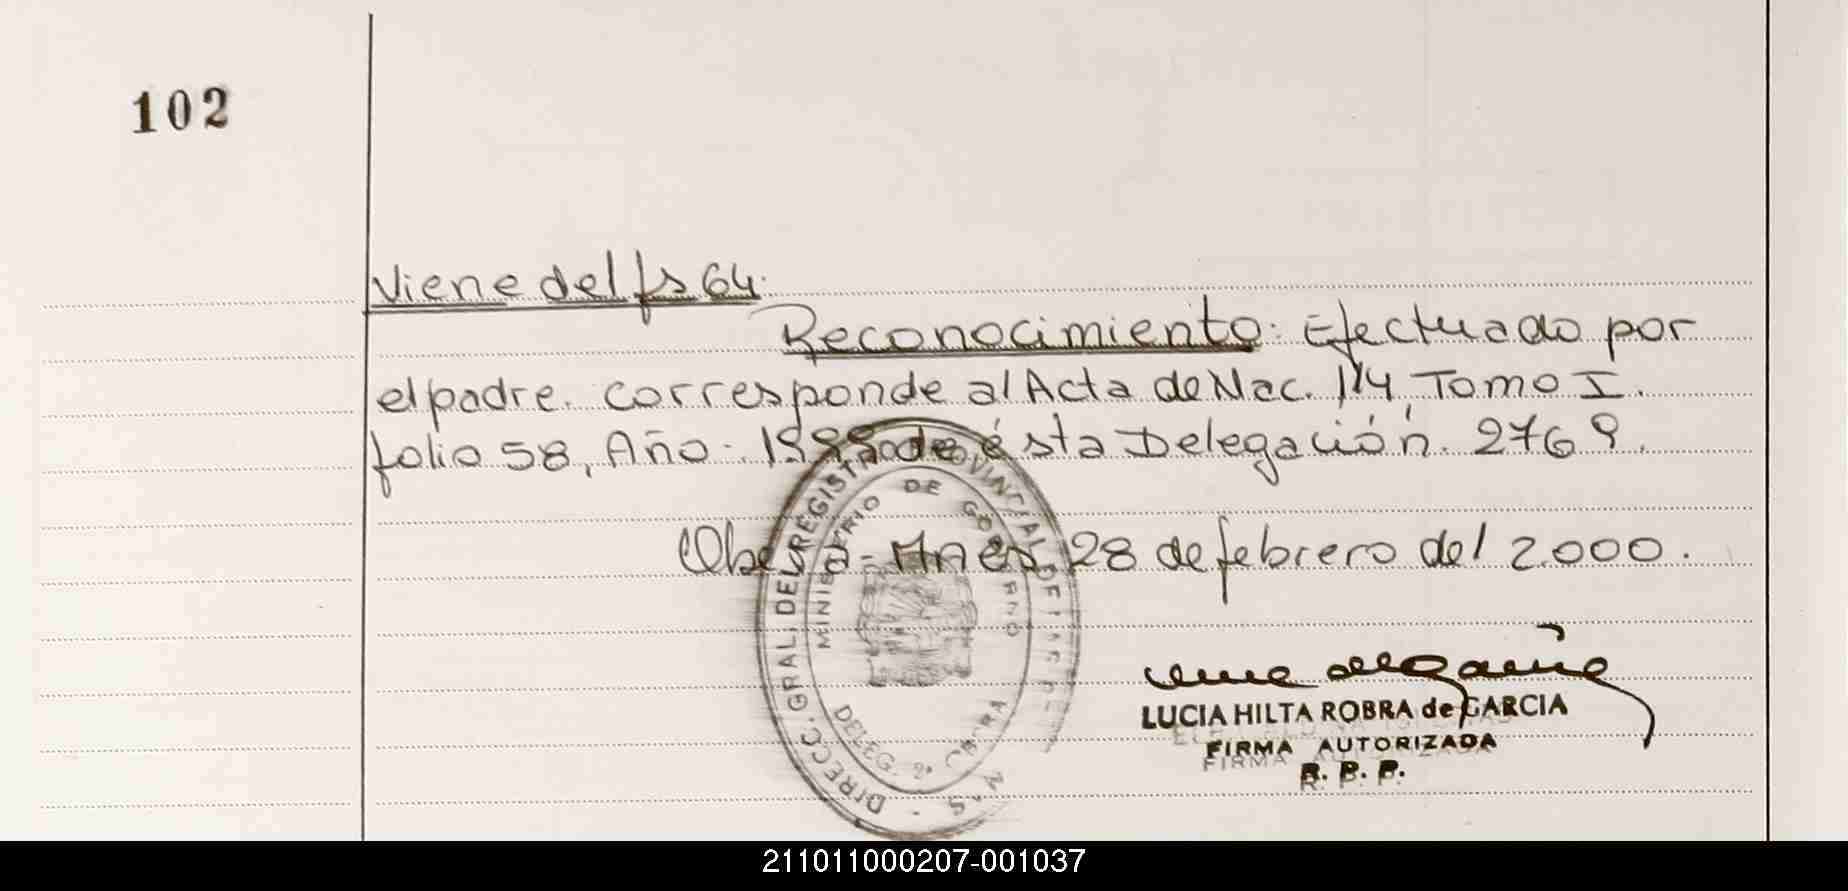 102
Viene del fs 64.
Reconocimiento: Efectuado por
el padre. corresponde al Acta de Nac. 114, Tomo I.
folio 58, Año: 1999 de ésta Delegación. 2769.
Oberá - Mnes, 28 de febrero del 2.000.
DIRECC. GRAL. DEL REGISTRO PROVINCIAL DE
MINISTERIO DE GOBIERNO
DELEG. 2ª
LUCIA HILTA ROBRA de GARCIA
FIRMA AUTORIZADA
FIRMA
R. P. P.
211011000207-001037